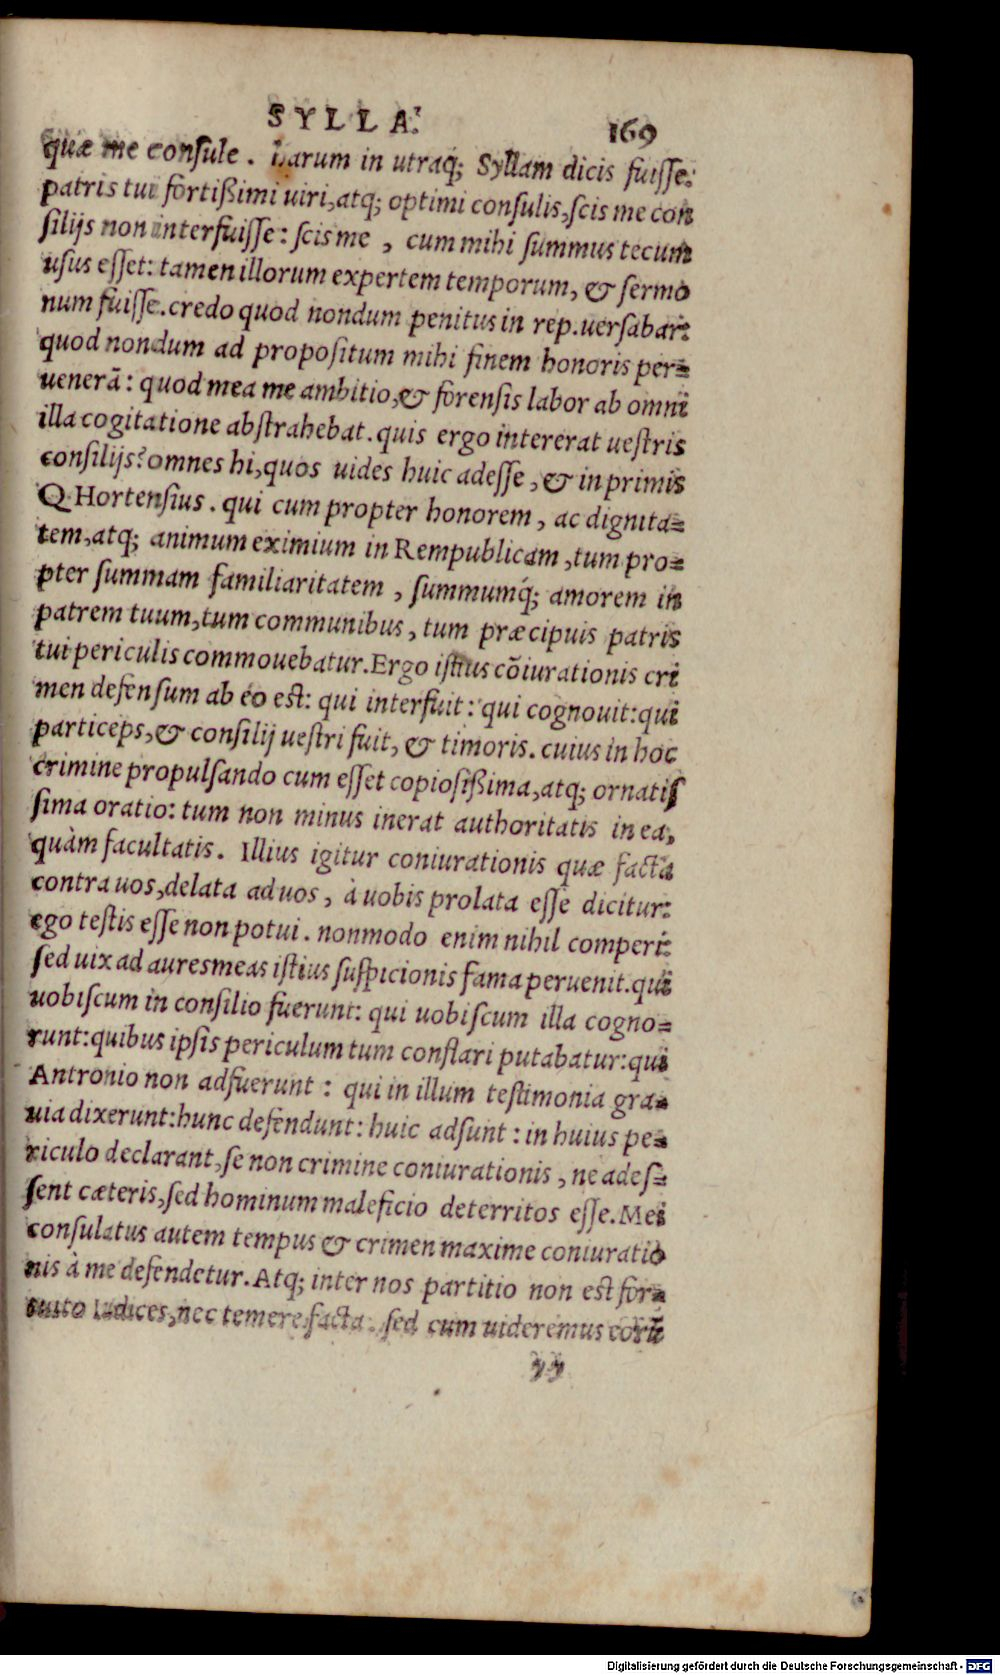 SYLLA.
169
quæ me consule . Harum in utraq; Syllam dicis fuisse.
patris tui fortißimi uiri,atq; optimi consulis,scis me con
silijs non interfuisse: scis me , cum mihi summus tecum
usus esset: tamen illorum expertem temporum, & sermo
num fuisse.credo quod nondum penitus in rep.uersabar:
quod nondum ad propositum mihi finem honoris per=
uenerã: quod mea me ambitio,& forensis labor ab omni
illa cogitatione abstrahebat.quis ergo intererat uestris
consilijs?omnes hi,quos uides huic adesse , & in primis
Q.Hortensius . qui cum propter honorem , ac dignita=
tem,atq; animum eximium in Rempublicam ,tum pro=
pter summam familiaritatem , summumq́; amorem in
patrem tuum,tum communibus , tum præcipuis patris
tui periculis commouebatur.Ergo istius cõiurationis cri
men defensum ab eo est: qui interfuit: qui cognouit:qui
particeps,& consilij uestri fuit, & timoris. cuius in hoc
crimine propulsando cum esset copiosißima,atq; ornatis
sima oratio: tum non minus inerat authoritatis in ea,
quàm facultatis . Illius igitur coniurationis quæ facta
contra uos,delata ad uos , à uobis prolata esse dicitur:
ego testis esse non potui . nonmodo enim nihil comperi:
sed uix ad aures meas istius suspicionis fama peruenit.qui
uobiscum in consilio fuerunt: qui uobiscum illa cogno=
runt:quibus ipsis periculum tum conflari putabatur:qui
Antronio non adfuerunt : qui in illum testimonia gra=
uia dixerunt:hunc defendunt: huic adsunt : in huius pe=
riculo declarant,se non crimine coniurationis , ne ades=
sent cæteris,sed hominum maleficio deterritos esse.Mei
consulatus autem tempus & crimen maxime coniuratio
nis à me defendetur.Atq; inter nos partitio non est for=
tuito Iudices,nec temere facta . sed cum uideremus eorũ
yy
Digitalisierung gefördert durch die Deutsche Forschungsgemeinschaft - DFG